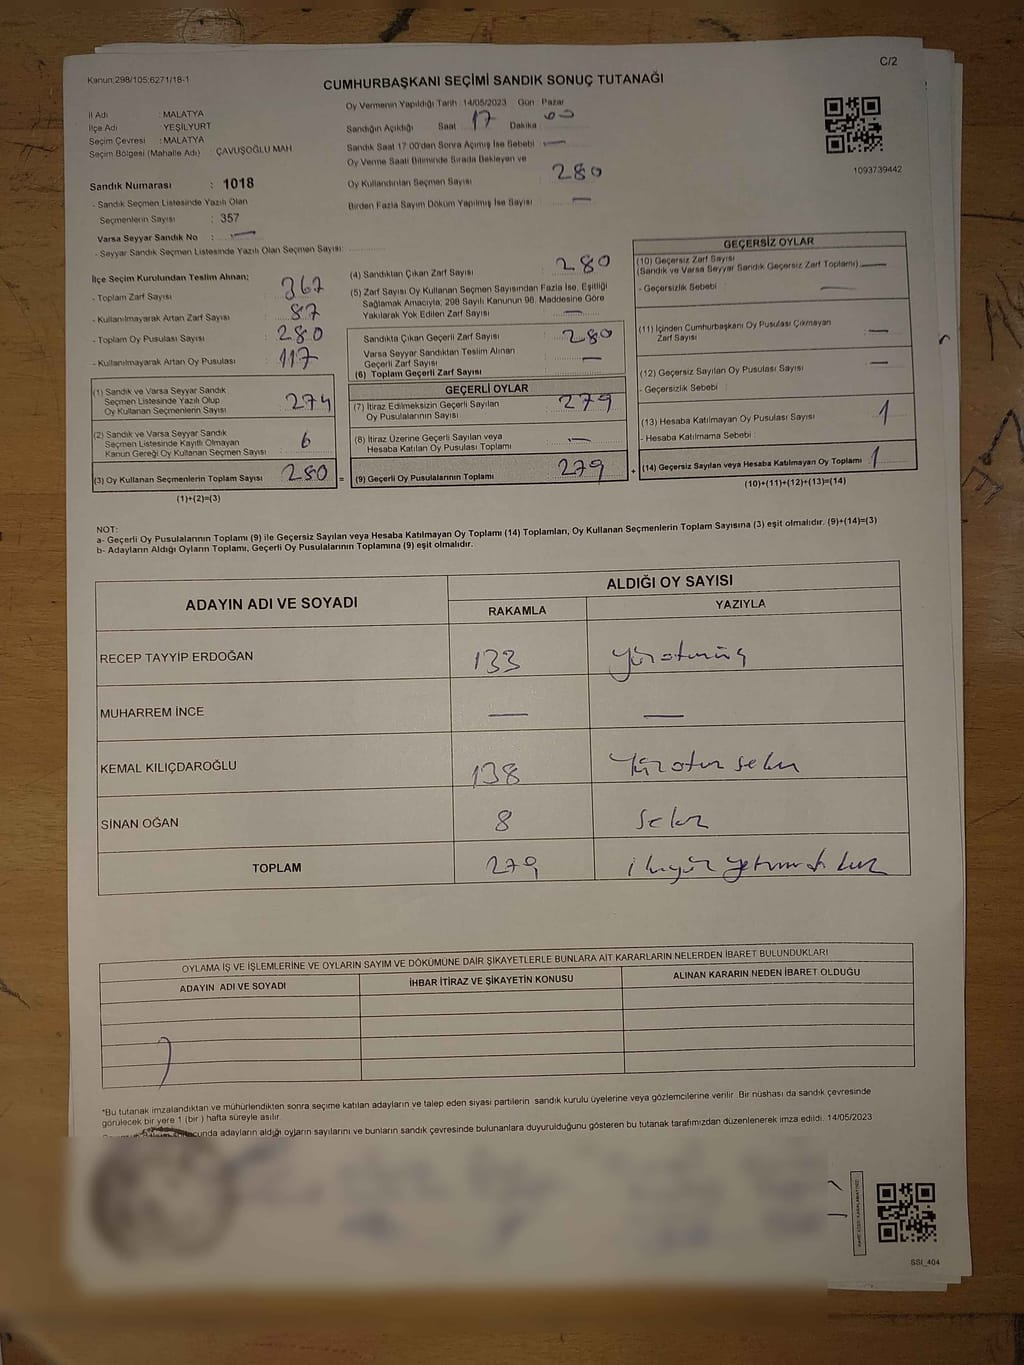 C/2
Kanun:298/105;6271/18-1
CUMHURBAŞKANI SEÇİMİ SANDIK SONUÇ TUTANAĞI
İl Adı : MALATYA
İlçe Adı YEŞİLYURT
Seçim Çevresi : MALATYA
Seçim Bölgesi (Mahalle Adı) ÇAVUŞOĞLU MAH
Sandık Numarası : 1018
- Sandık Seçmen Listesinde Yazılı Olan
Seçmenlerin Sayısı : 357
Varsa Seyyar Sandık No : —
- Seyyar Sandık Seçmen Listesinde Yazılı Olan Seçmen Sayısı:
Oy Vermenin Yapıldığı Tarih :14/05/2023 Gün : Pazar
Sandığın Açıldığı Saat 17 Dakika 00
Sandık Saat 17:00'den Sonra Açımış İse Sebebi —
Oy Verme Saati Bitiminde Sırada Bekleyen ve
Oy Kullandırılan Seçmen Sayısı 280
Birden Fazla Sayım Döküm Yapılmış İse Sayısı —
1093739442
İlçe Seçim Kurulundan Teslim Alınan;
- Toplam Zarf Sayısı 367
- Kullanılmayarak Artan Zarf Sayısı 87
- Toplam Oy Pusulası Sayısı 280
- Kullanılmayarak Artan Oy Pusulası 117
(1) Sandık ve Varsa Seyyar Sandık
Seçmen Listesinde Yazılı Olup
Oy Kullanan Seçmenlerin Sayısı 274
(2) Sandık ve Varsa Seyyar Sandık
Seçmen Listesinde Kayıtlı Olmayan
Kanun Gereği Oy Kullanan Seçmen Sayısı 6
(3) Oy Kullanan Seçmenlerin Toplam Sayısı 280 =
(1)+(2)=(3)
(4) Sandıktan Çıkan Zarf Sayısı 280
(5) Zarf Sayısı Oy Kullanan Seçmen Sayısından Fazla İse, Eşitliği
Sağlamak Amacıyla; 298 Sayılı Kanunun 98. Maddesine Göre
Yakılarak Yok Edilen Zarf Sayısı —
Sandıkta Çıkan Geçerli Zarf Sayısı 280
Varsa Seyyar Sandıktan Teslim Alınan
Geçerli Zarf Sayısı —
(6) Toplam Geçerli Zarf Sayısı
GEÇERLİ OYLAR
(7) İtiraz Edilmeksizin Geçerli Sayılan
Oy Pusulalarının Sayısı 279
(8) İtiraz Üzerine Geçerli Sayılan veya
Hesaba Katılan Oy Pusulası Toplamı —
(9) Geçerli Oy Pusulalarının Toplamı 279 +
GEÇERSİZ OYLAR
(10) Geçersiz Zarf Sayısı
(Sandık ve Varsa Seyyar Sandık Geçersiz Zarf Toplamı) —
- Geçersizlik Sebebi : —
(11) İçinden Cumhurbaşkanı Oy Pusulası Çıkmayan
Zarf Sayısı —
(12) Geçersiz Sayılan Oy Pusulası Sayısı —
- Geçersizlik Sebebi :
(13) Hesaba Katılmayan Oy Pusulası Sayısı 1
- Hesaba Katılmama Sebebi :
(14) Geçersiz Sayılan veya Hesaba Katılmayan Oy Toplamı 1
(10)+(11)+(12)+(13)=(14)
NOT:
a- Geçerli Oy Pusulalarının Toplamı (9) ile Geçersiz Sayılan veya Hesaba Katılmayan Oy Toplamı (14) Toplamları, Oy Kullanan Seçmenlerin Toplam Sayısına (3) eşit olmalıdır. (9)+(14)=(3)
b- Adayların Aldığı Oyların Toplamı, Geçerli Oy Pusulalarının Toplamına (9) eşit olmalıdır.
ADAYIN ADI VE SOYADI ALDIĞI OY SAYISI
RAKAMLA YAZIYLA
RECEP TAYYİP ERDOĞAN 133 yüzotuzüç
MUHARREM İNCE — —
KEMAL KILIÇDAROĞLU 138 Yüzotuz sekiz
SİNAN OĞAN 8 Sekiz
TOPLAM 279 ikiyüz yetmiş dokuz
OYLAMA İŞ VE İŞLEMLERİNE VE OYLARIN SAYIM VE DÖKÜMÜNE DAİR ŞİKAYETLERLE BUNLARA AİT KARARLARIN NELERDEN İBARET BULUNDUKLARI
ADAYIN ADI VE SOYADI İHBAR İTİRAZ VE ŞİKAYETİN KONUSU ALINAN KARARIN NEDEN İBARET OLDUĞU
*Bu tutanak imzalandıktan ve mühürlendikten sonra seçime katılan adayların ve talep eden siyasi partilerin sandık kurulu üyelerine veya gözlemcilerine verilir. Bir nüshası da sandık çevresinde
görülecek bir yere 1 (bir) hafta süreyle asılır.
adayların aldığı oyların sayılarını ve bunların sandık çevresinde bulunanlara duyurulduğunu gösteren bu tutanak tarafımızdan düzenlenerek imza edildi. 14/05/2023
SSI_404